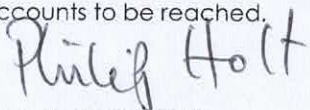 ccounts to be reached.
Philip Holt